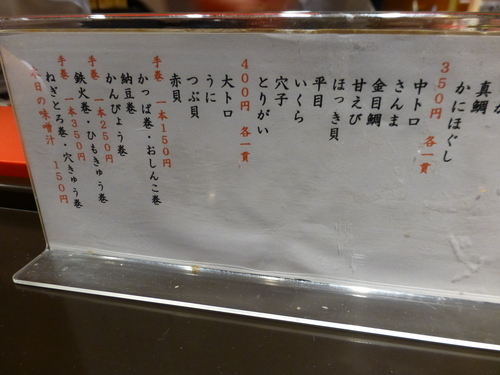 真鯛
かにほぐし
350円 各一貫
中トロ
さんま
金目鯛
甘えび
ほっき貝
平目
いくら
穴子
とりがい
400円 各一貫
大トロ
うに
つぶ貝
赤貝
手巻 一本150円
かっぱ巻・おしんこ巻
納豆巻
かんぴょう巻
手巻 一本250円
鉄火巻・ひもきゅう巻
手巻 一本350円
ねぎとろ巻・穴きゅう巻
本日の味噌汁 150円